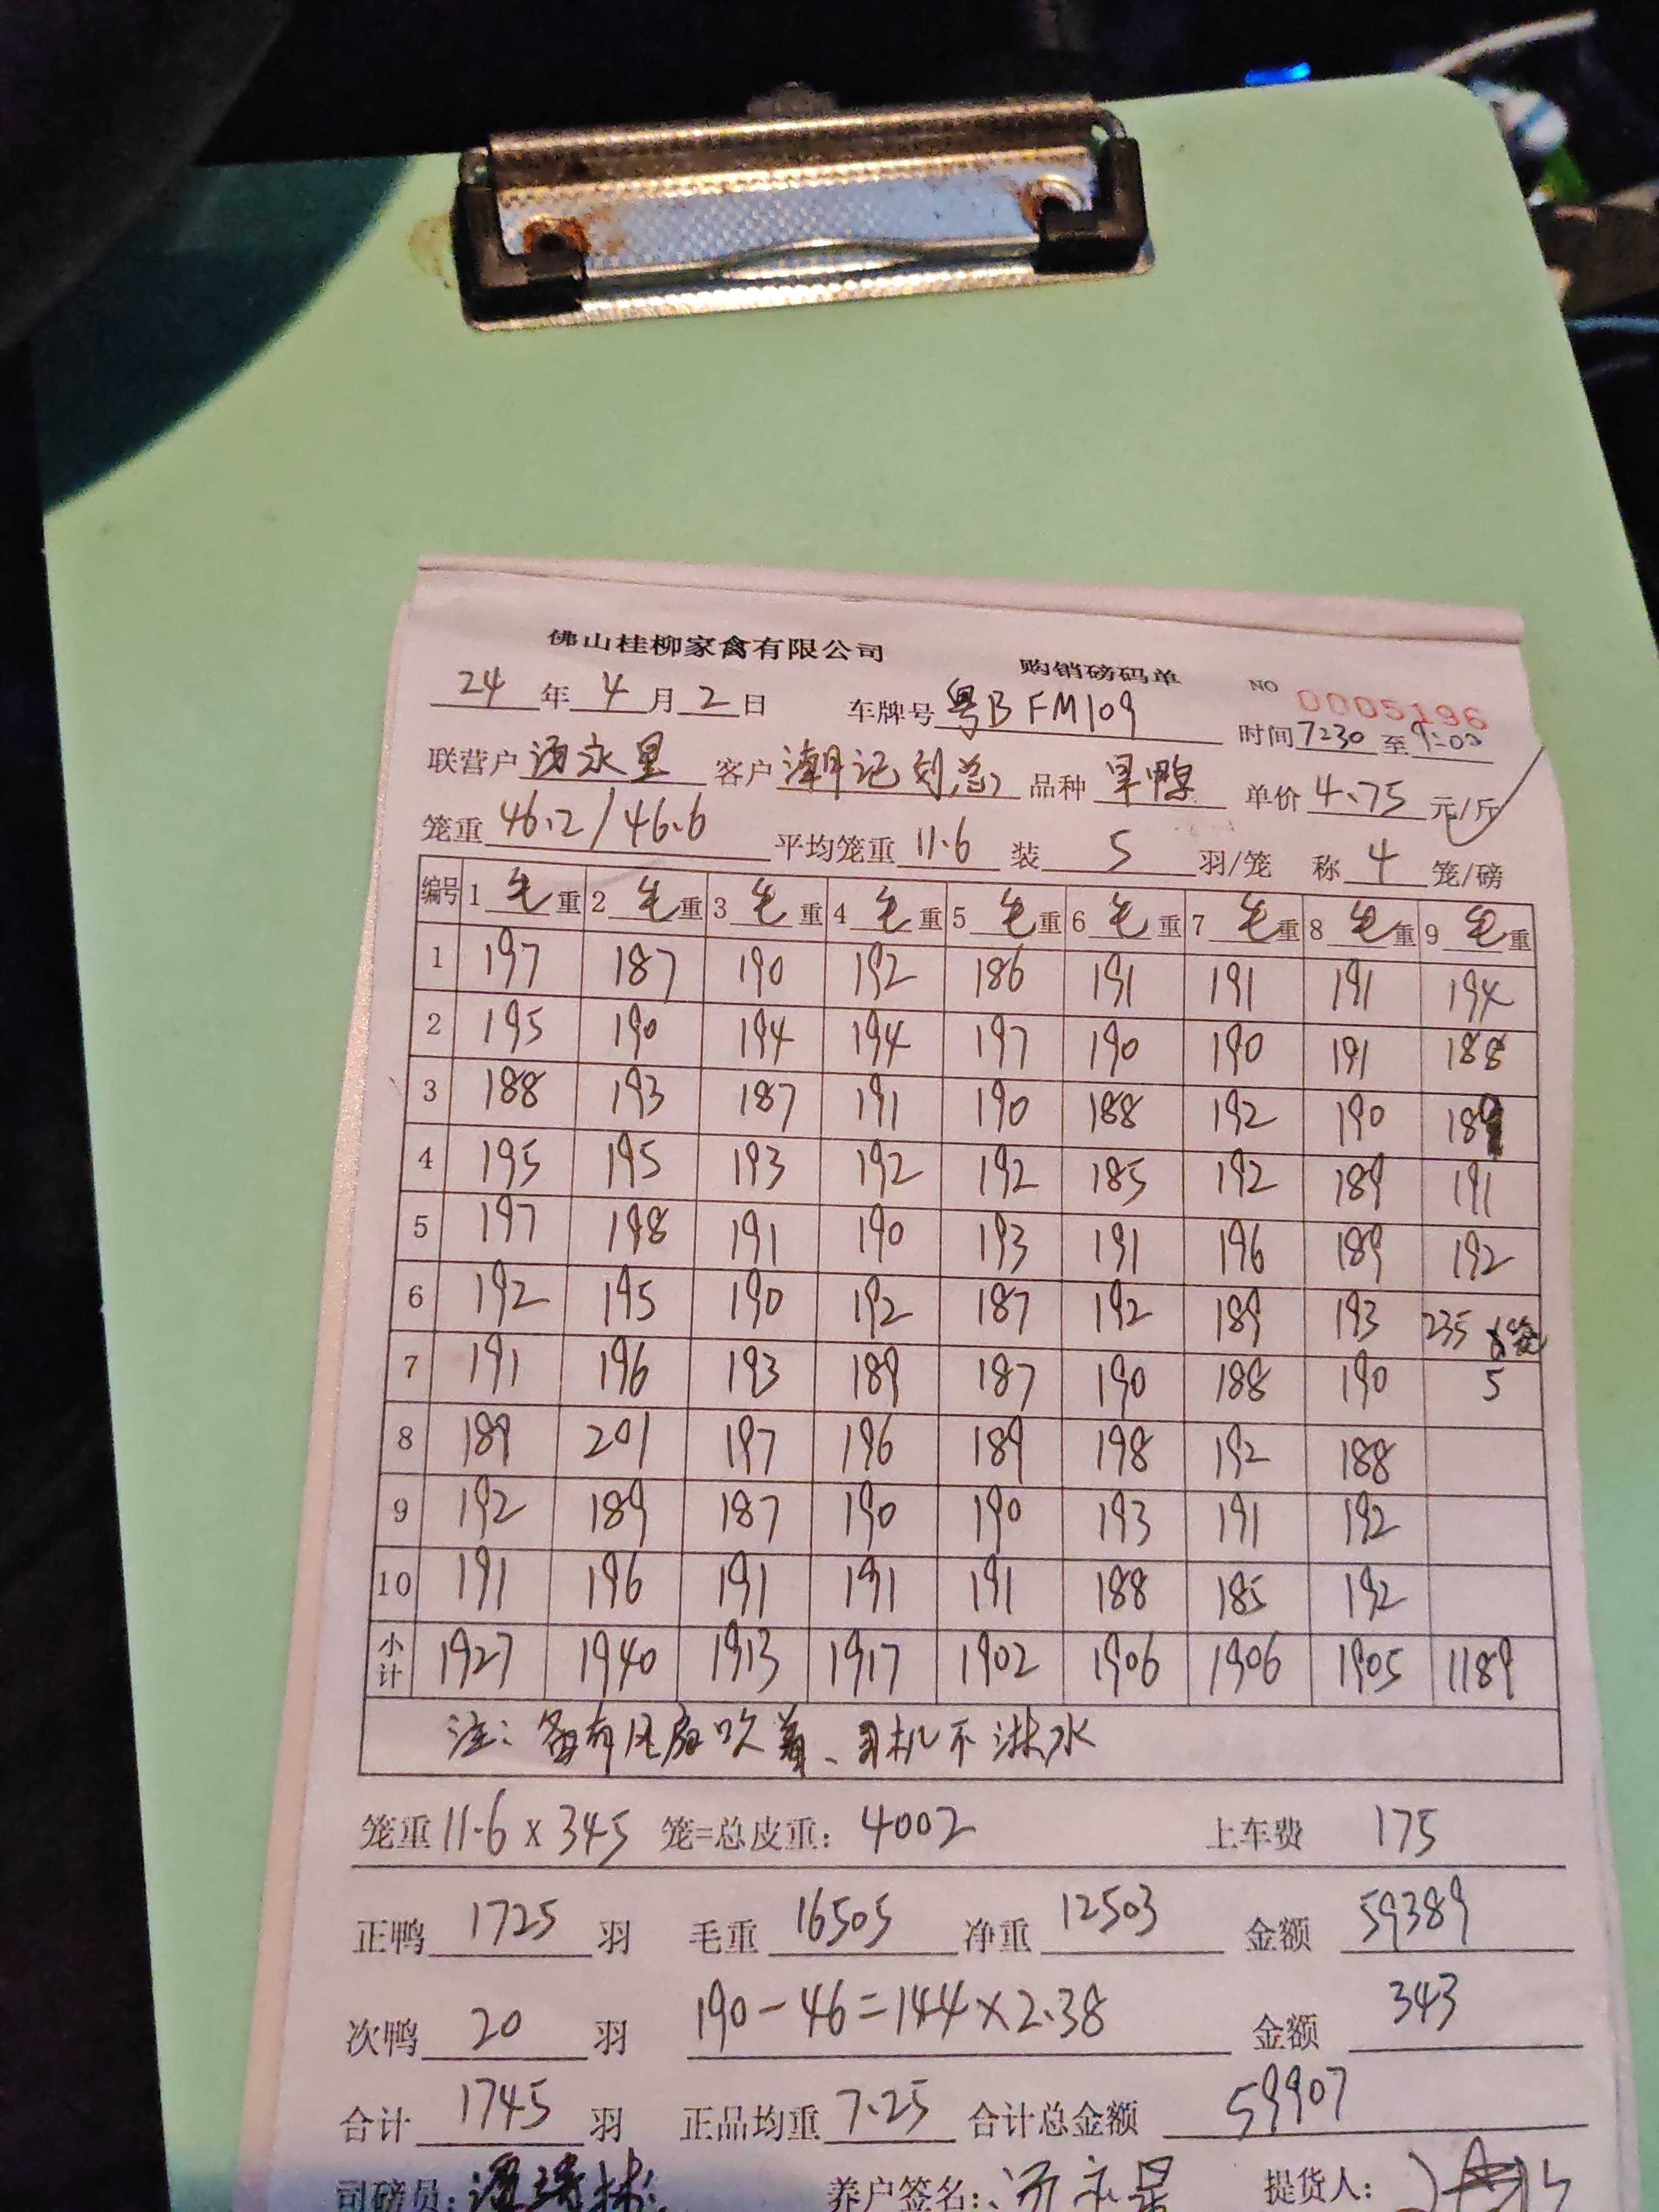 佛山桂柳家禽有限公司 购销磅码单 NO 0005196
24年4月2日 车牌号粤BFM109 时间7:30至9:00
联营户汤永星 客户潮记刘总 品种 单价4.75元/斤
笼重46.2/46.6 平均笼重11.6 装5羽/笼 称4笼/磅
编号 1毛重 2毛重 3毛重 4毛重 5毛重 6毛重 7毛重 8毛重 9毛重
1 197 187 190 192 186 191 191 191 194
2 195 190 194 194 197 190 190 191 188
3 188 193 187 191 190 188 192 190 189
4 195 195 193 192 192 185 192 189 191
5 197 198 191 190 193 191 196 189 192
6 192 195 190 192 187 192 189 193 235 笼
7 191 196 193 189 187 190 188 190 5
8 189 201 197 196 189 198 192 188
9 192 189 187 190 190 193 191 192
10 191 196 191 191 191 188 185 192
小计 1927 1940 1913 1917 1902 1906 1906 1905 1189
注:备有风扇吹着、司机不淋水
笼重11.6x345笼=总皮重:4002 上车费 175
正鸭1725羽 毛重16505 净重12503 金额59389
次鸭20羽 190-46=144×2.38 金额343
合计1745羽 正品均重7.25 合计总金额59907
司磅员: 养户签名:汤永星 提货人: